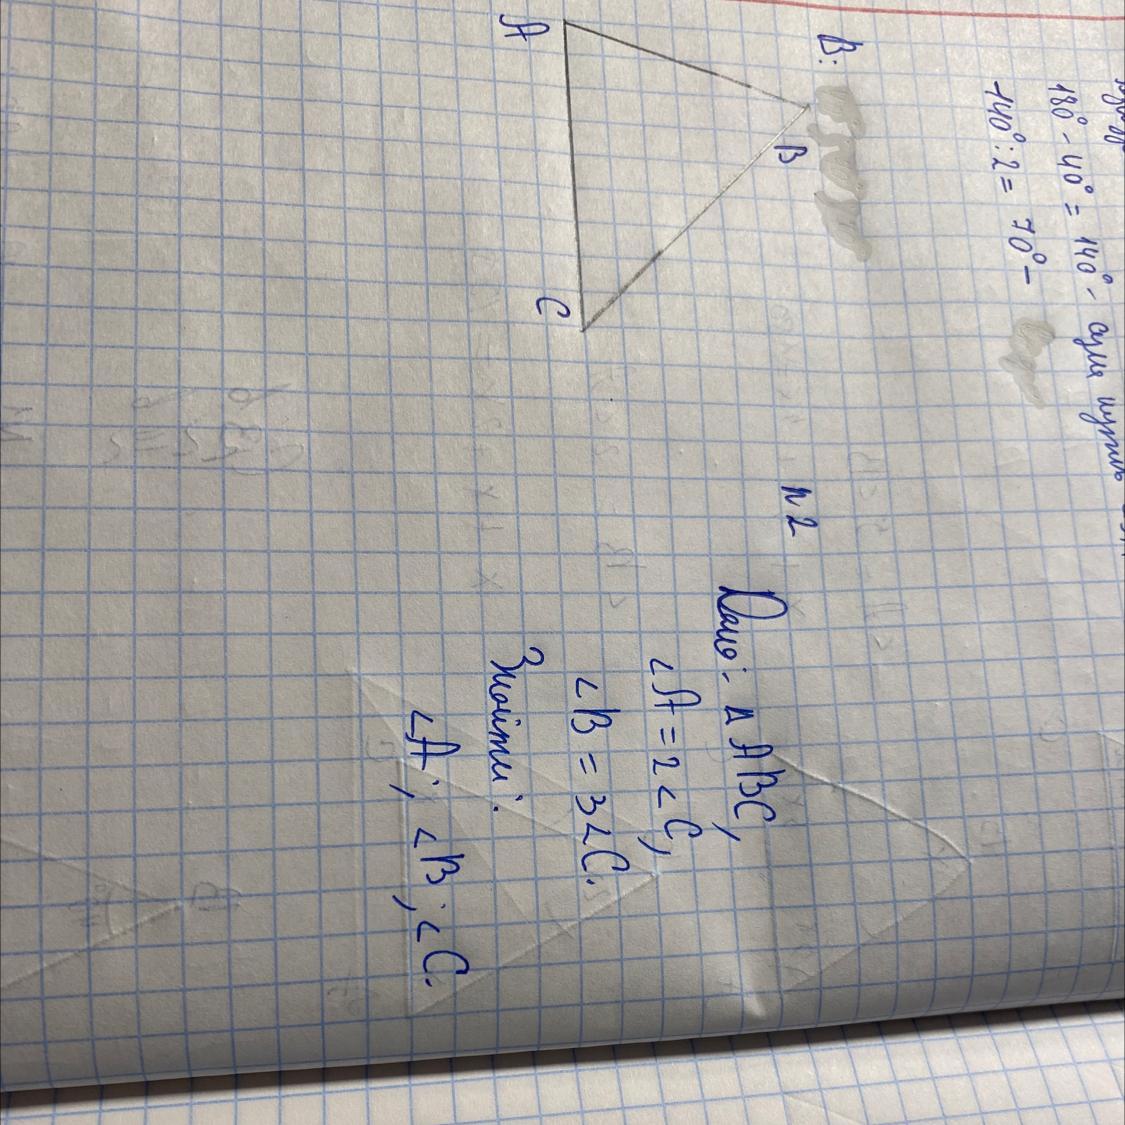 180° - 40° = 140° - сума
140° : 2 = 70° -
В:
B
A
C
n2
Дано: △ ABC,
∠A = 2∠C,
∠B = 3∠C.
Знайти:
∠A; ∠B; ∠C.